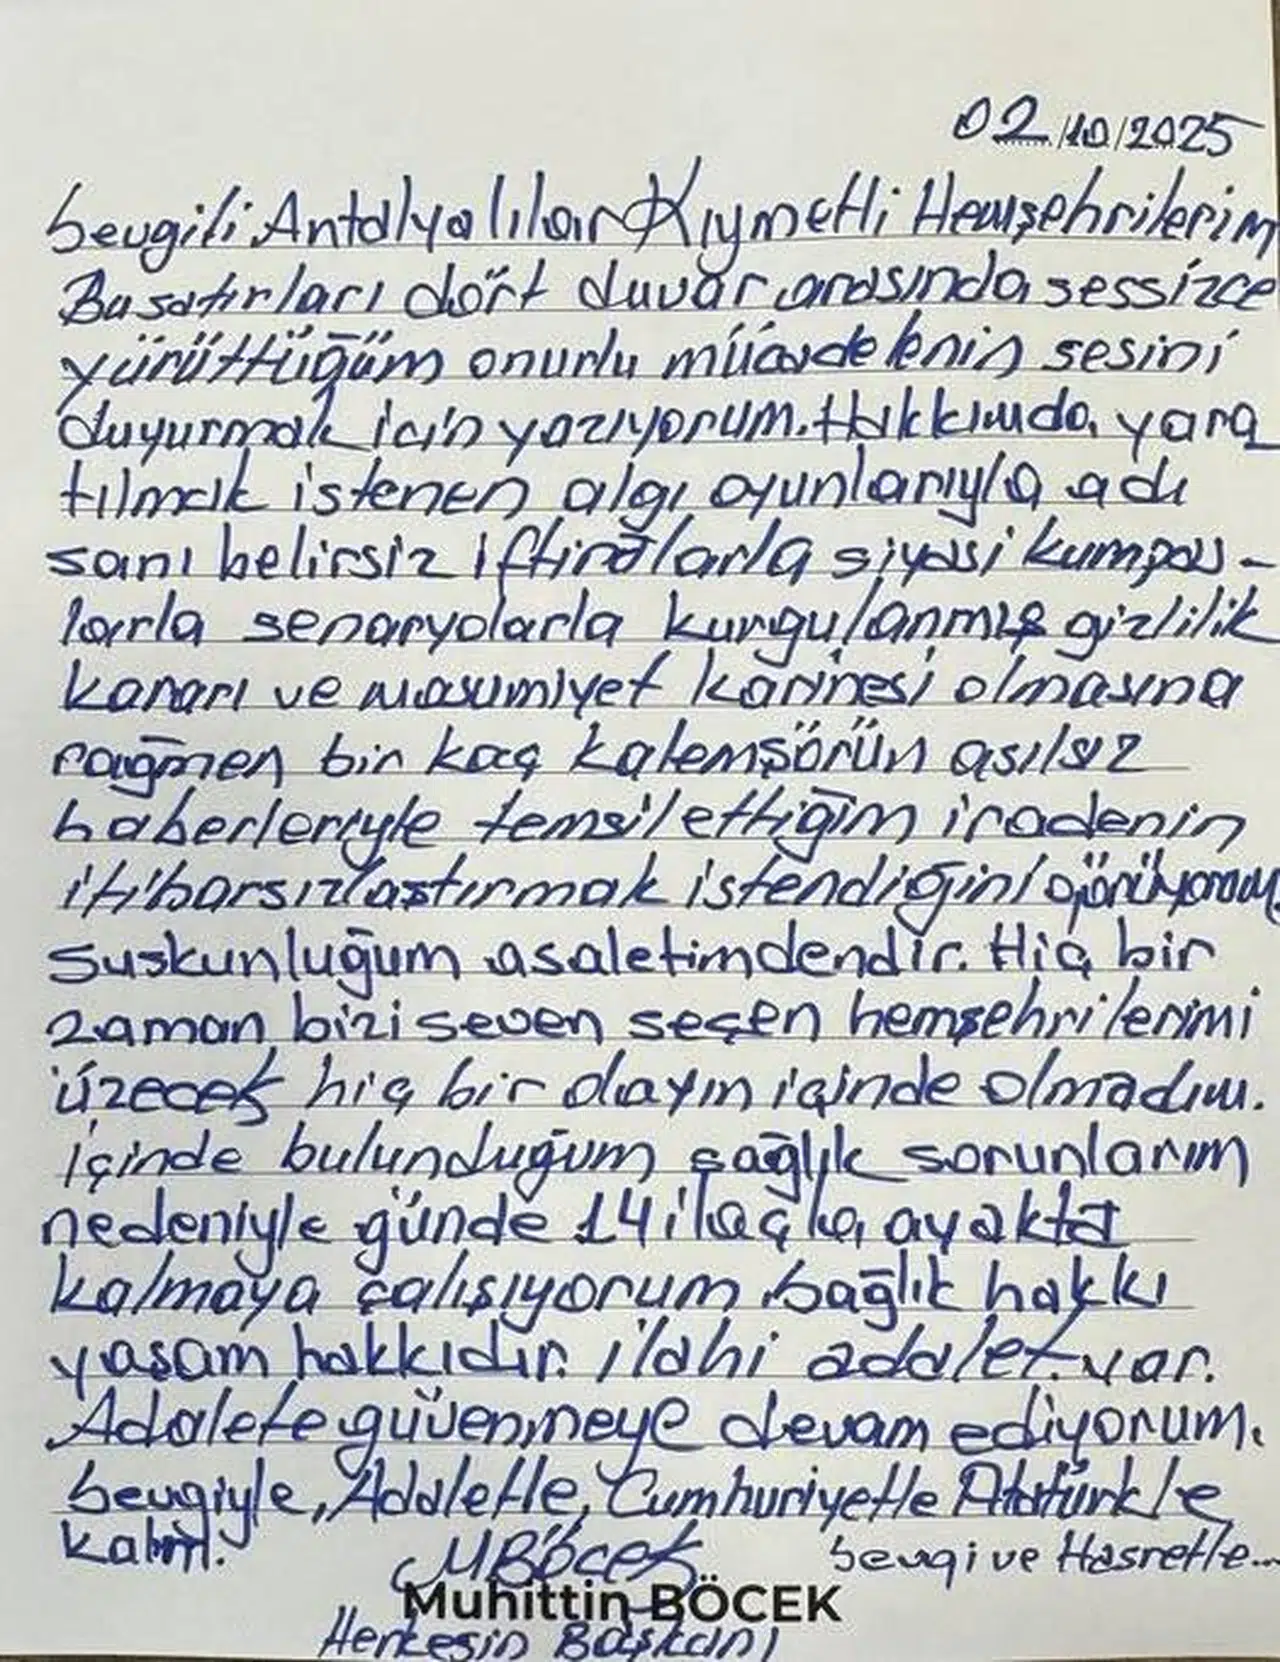 02/10/2025
Sevgili Antalyalılar Kıymetli Hemşehrilerim
Bu satırları dört duvar arasında sessizce
yürüttüğüm onurlu mücadelenin sesini
duyurmak için yazıyorum. Hakkımda yara
tılmak istenen algı oyunlarıyla adı
sanı belirsiz iftiralarla siyasi kumpas-
larla senaryolarla kurgulanmış gizlilik
kararı ve masumiyet karinesi olmasına
rağmen bir kaç kalemşörün asılsız
haberleriyle temsil ettiğim iradenin
itibarsızlaştırmak istendiğini görüyorum
Suskunluğum asaletimdendir. Hiç bir
zaman bizi seven seçen hemşehrilerimi
üzecek hiç bir olayın içinde olmadım.
İçinde bulunduğum sağlık sorunlarım
nedeniyle günde 14 ilaçla ayakta
kalmaya çalışıyorum. Sağlık hakkı
yaşam hakkıdır. İlahi adalet var.
Adalete güvenmeye devam ediyorum.
Sevgiyle, Adaletle, Cumhuriyetle Atatürkle
kalın.
Sevgi ve Hasretle...
MBöcek
Muhittin BÖCEK
Herkesin Başkanı